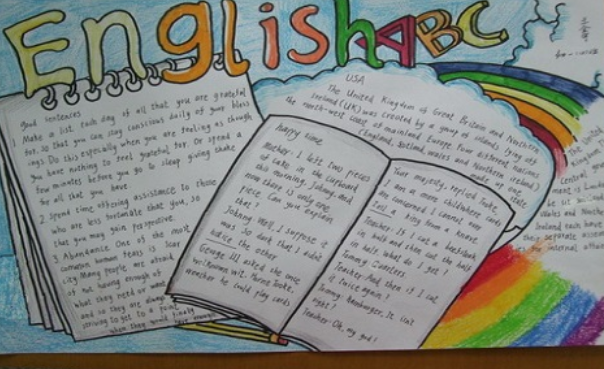 English ABC
good sentences
1 Make a list each day of all that you are grateful
for, so that you can stay conscious daily of your bless
ings. Do this especially when you are feeling as though
you have nothing to feel grateful for. Or spend a
few minutes before you go to sleep giving thanks
for all that you have.
2. Spend time offering assistance to those
who are less fortunate than you, so
that you may gain perspective.
3. Abundance One of the most
common human fears is scar
city. Many people are afraid
of not having enough of
what they need or want
and so they are always
striving to get to a point
when they would finally
have enough
happy time
Mother: I left two pieces
of cake in the cupboard
this morning, Johnny, and
now there is only one
piece. Can you explain
that?
Johnny: Well, I suppose it
was so dark that I didn't
notice the other
George III asked the once
whether he could play cards
Your majesty, replied Tooke,
I am a mere child where cards
are concerned I cannot even
tell a king from a knave.
Teacher: If I cut a beefsteak
in half and then cut the half
in half, what do I get?
Tommy:
Teacher: And then if I cut
it twice again?
Tommy: Hamburger. It isn't
right?
Teacher: Oh, my god!
USA
The United Kingdom of Great Britain and Northern
Ireland (UK) was created by a group of islands lying off
the north-west coast of mainland Europe. Four different nations
made up one state
(England, Scotland, Wales and Northern Ireland)
The United
Kingdom
Central
ment is
Wales and Northern
Ireland each have
separate assem
internal affairs